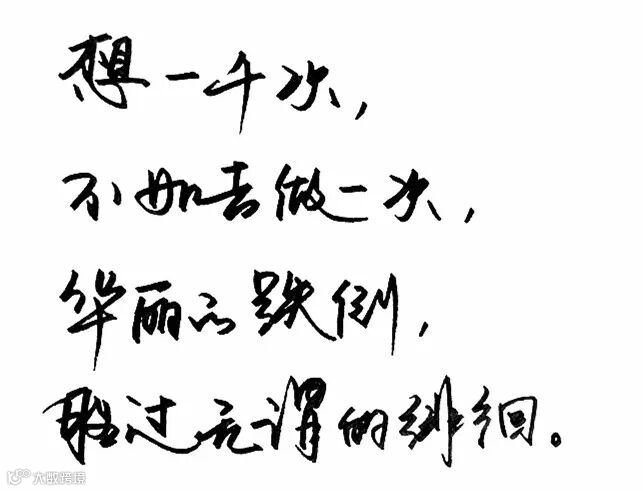 想一千次，
不如去做一次，
华丽的跌倒，
胜过无谓的徘徊。
大数跨境